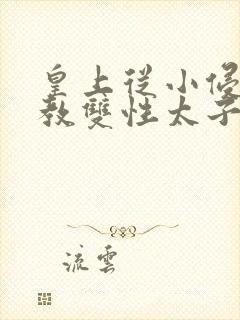 皇上從小侵
教雙性太子
流雲